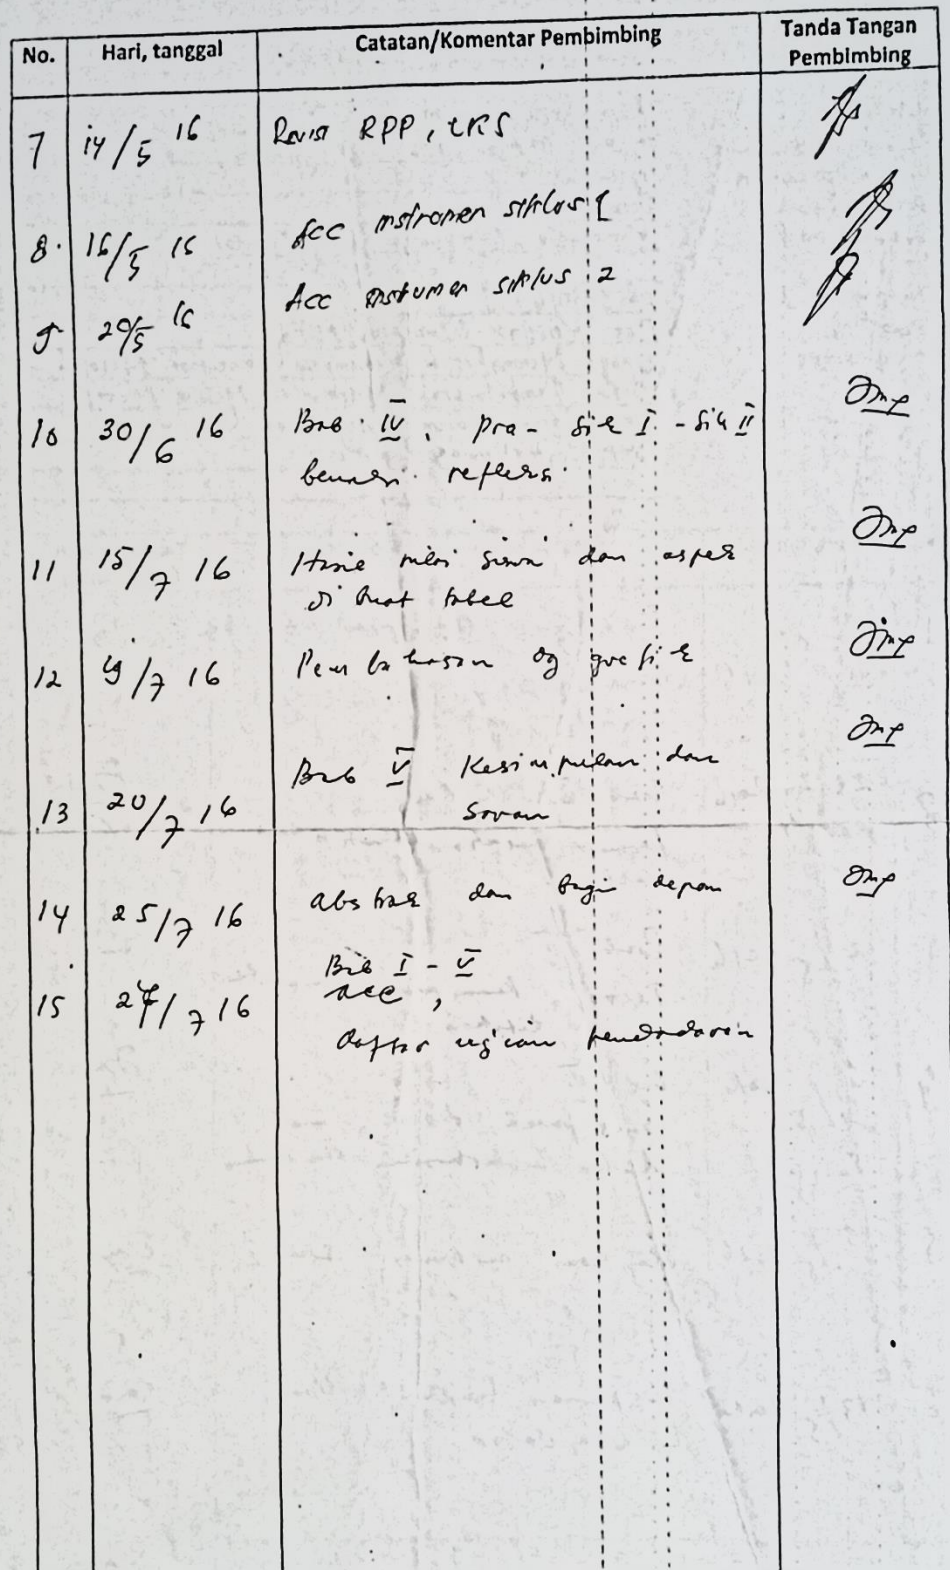 No. Hari, tanggal Catatan/Komentar Pembimbing Tanda Tangan Pembimbing
7 14/5 16 Revisi RPP, LKS
8. 16/5 16 Acc instrumen siklus 1
9 20/5 16 Acc instumen siklus 2
10 30/6 16 Bab IV, pra- sik I - sik II
refleksi.
11 15/7 16 Hasil nilai siswa dan aspek
di buat tabel
12 19/7 16 Pembahasan dg grafik
13 20/7 16 Bab V Kesimpulan dan
Saran
14 25/7 16 abstrak dan bagi depan
15 27/7 16 Bab I - V
acc,
daftar ujian pendadaran